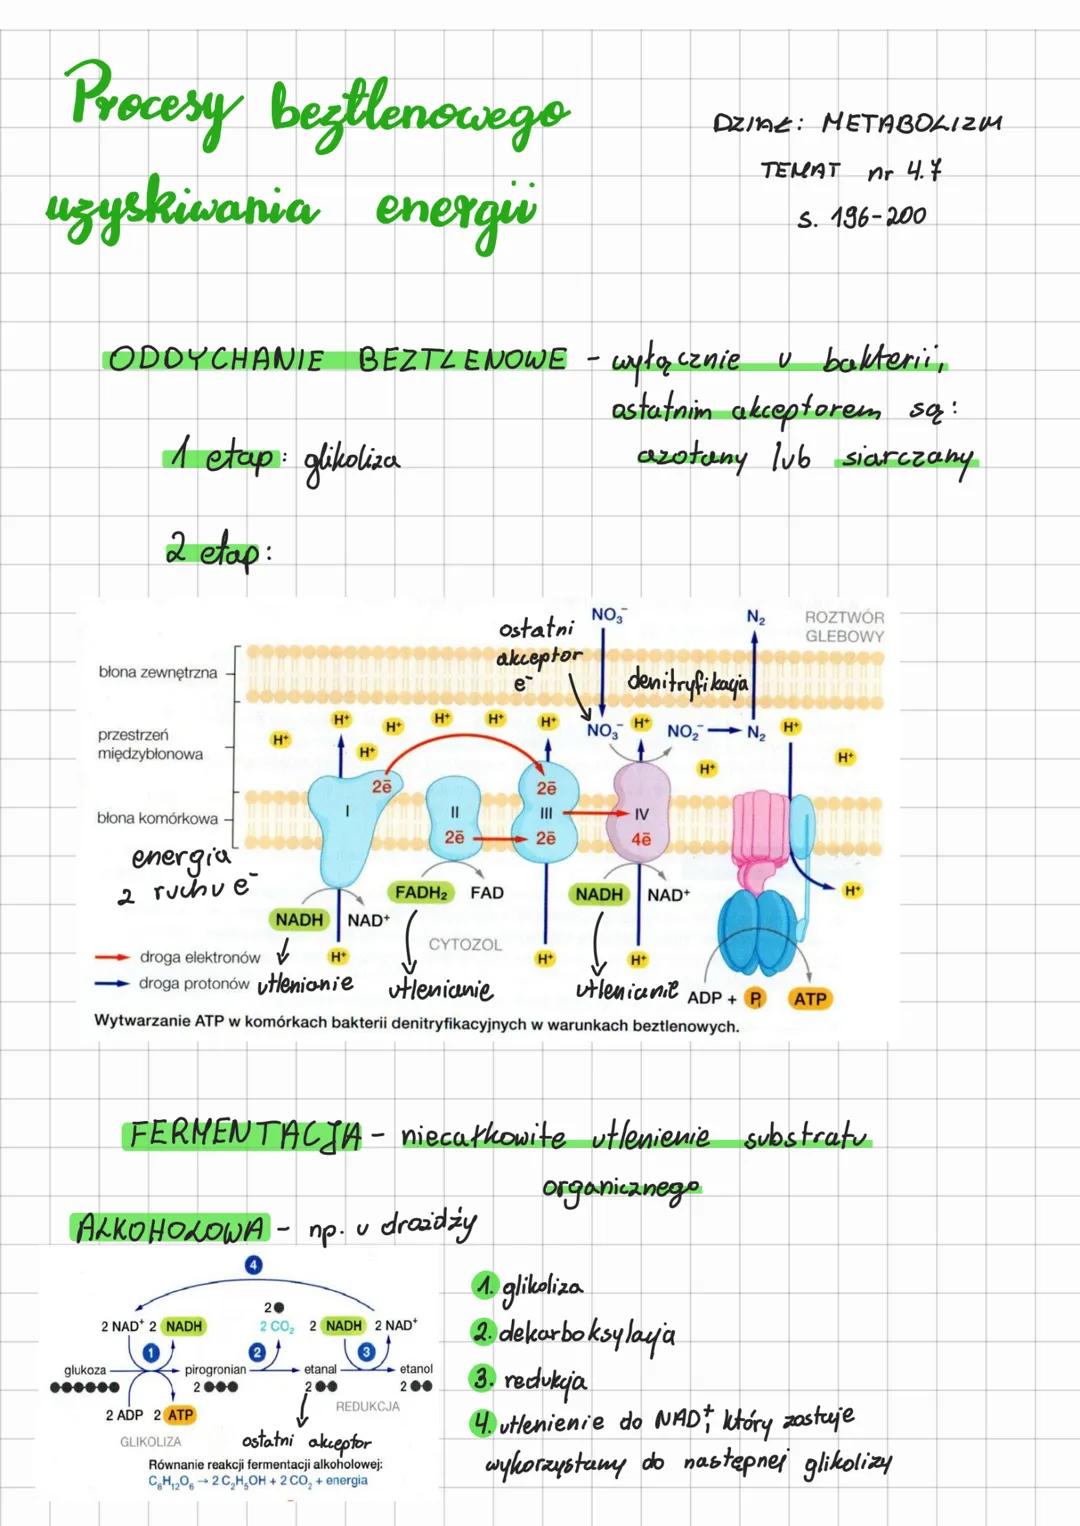 Procesy beztlenowego
uzyskiwania energii
DZIAŁ: METABOLIZM
TEMAT nr 4.7
s. 196-200
ODDYCHANIE BEZTLENOWE - wyłącznie u bakterii,
ostatnim akceptorem są:
azotany lub siarczany
1 etap: glikoliza
2 etap:
ostatni
akceptor
e⁻
NO₃⁻
N₂
ROZTWÓR
GLEBOWY
błona zewnętrzna
denitryfikacja
przestrzeń
międzybłonowa
H⁺ H⁺ H⁺ H⁺ H⁺ H⁺ H⁺ NO₃⁻ H⁺ NO₂⁻ N₂ H⁺ H⁺ H⁺
błona komórkowa
2ē 2ē
I II III IV
2ē 2ē 4ē
energia
z ruchu e⁻
NADH NAD⁺
FADH₂ FAD
NADH NAD⁺
H⁺
CYTOZOL
droga elektronów
droga protonów
H⁺ H⁺ H⁺
utlenianie utlenianie utlenianie
ADP + Pi ATP
Wytwarzanie ATP w komórkach bakterii denitryfikacyjnych w warunkach beztlenowych.
FERMENTACJA - niecałkowite utlenienie substratu
organicznego
ALKOHOLOWA - np. u drożdży
4
2
2 NAD⁺ 2 NADH 2 CO₂ 2 NADH 2 NAD⁺
1 2 3
glukoza pirogronian etanal etanol
2 2 2
2 ADP 2 ATP
REDUKCJA
GLIKOLIZA
ostatni akceptor
Równanie reakcji fermentacji alkoholowej:
C₆H₁₂O₆ → 2 C₂H₅OH + 2 CO₂ + energia
1. glikoliza
2. dekarboksylacja
3. redukcja
4. utlenienie do NAD⁺, który zostaje
wykorzystany do następnej glikolizy